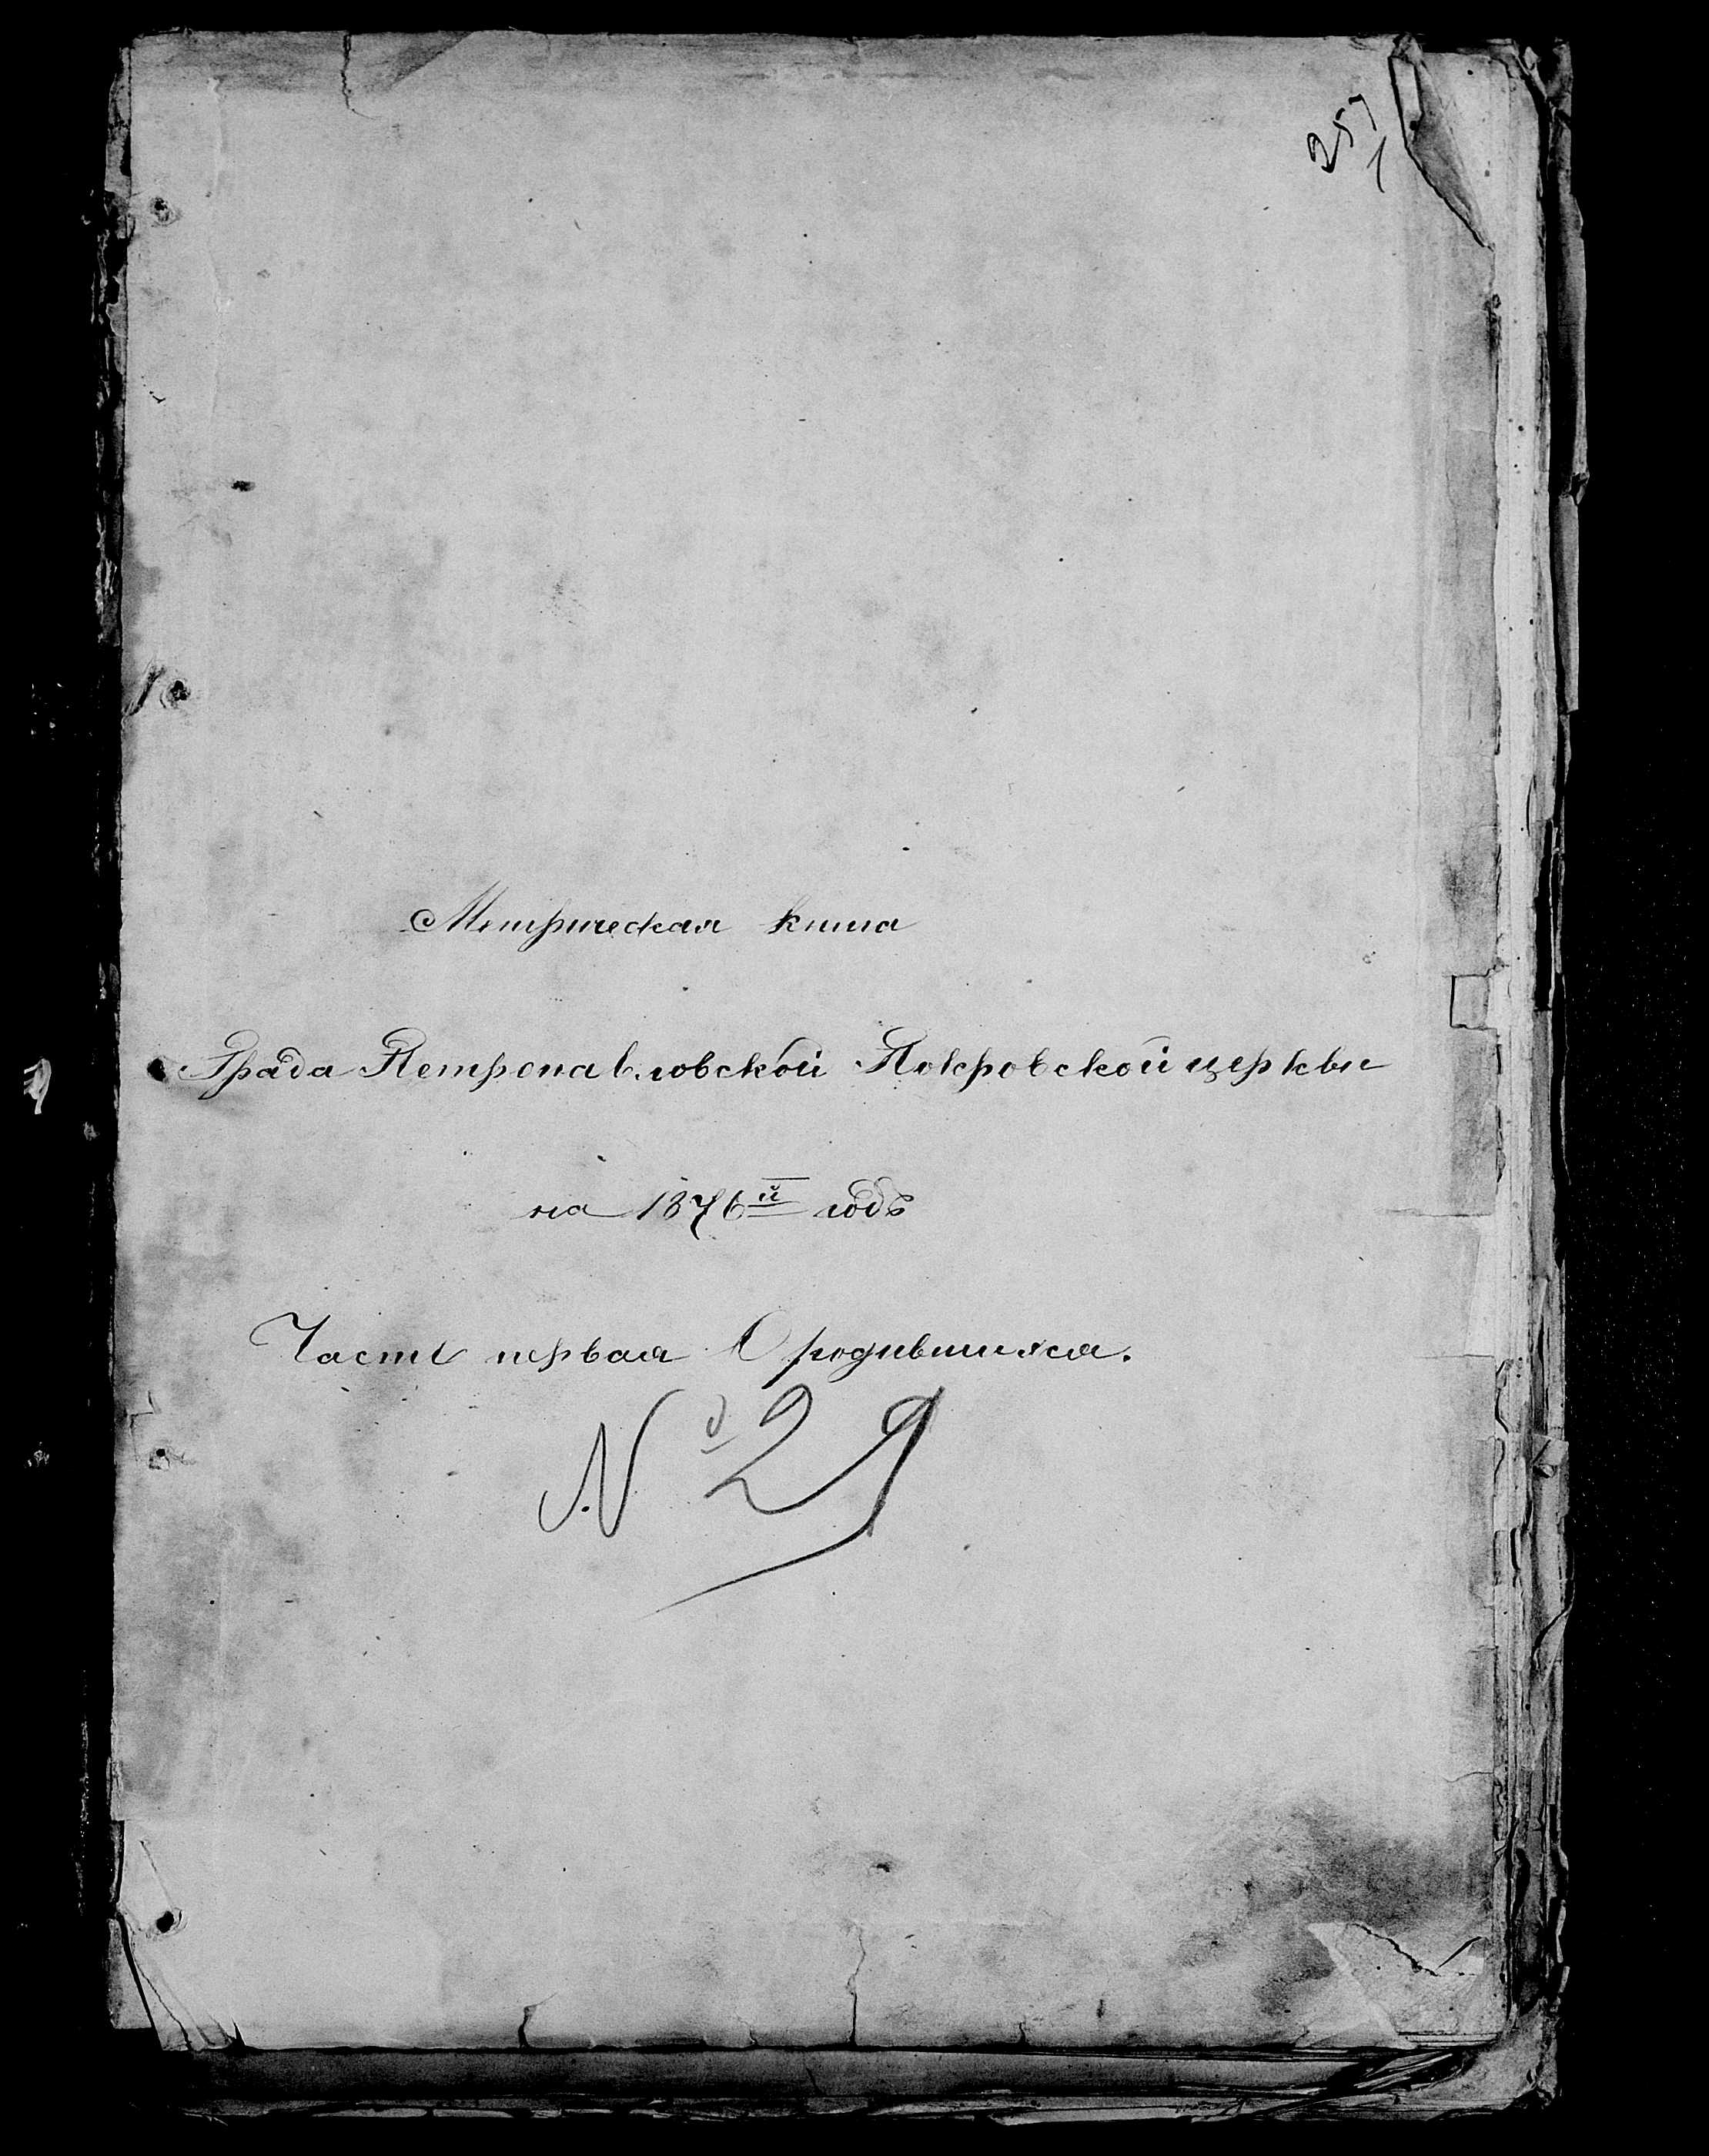 257
1
Метрическая книга
Града Петропавловской Покровской церкви
на 1876й годъ
Часть первая О родившихся.
№ 29